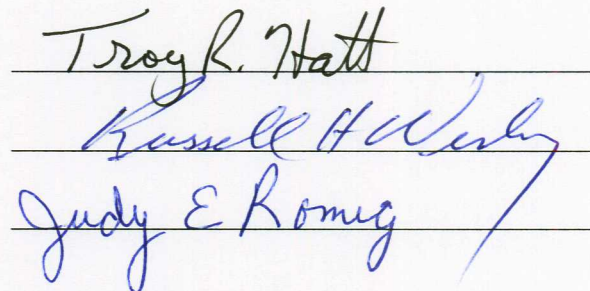 Troy R. Hatt
Russell H
Judy E Romig